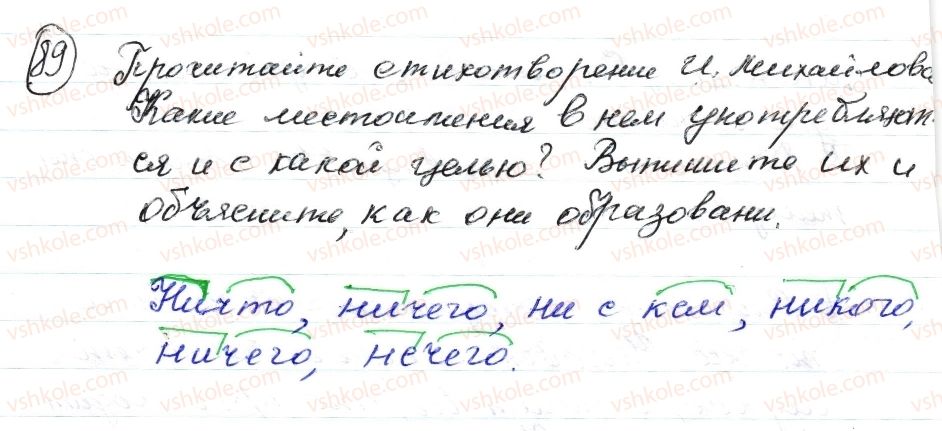 89 Прочитайте стихотворение И. Михайлова
Какие местоимения в нем употребляют-
ся и с какой целью? Выпишите их и
объясните, как они образовани.
Ничто, ничего, ни с кем, никого,
ничего, нечего.